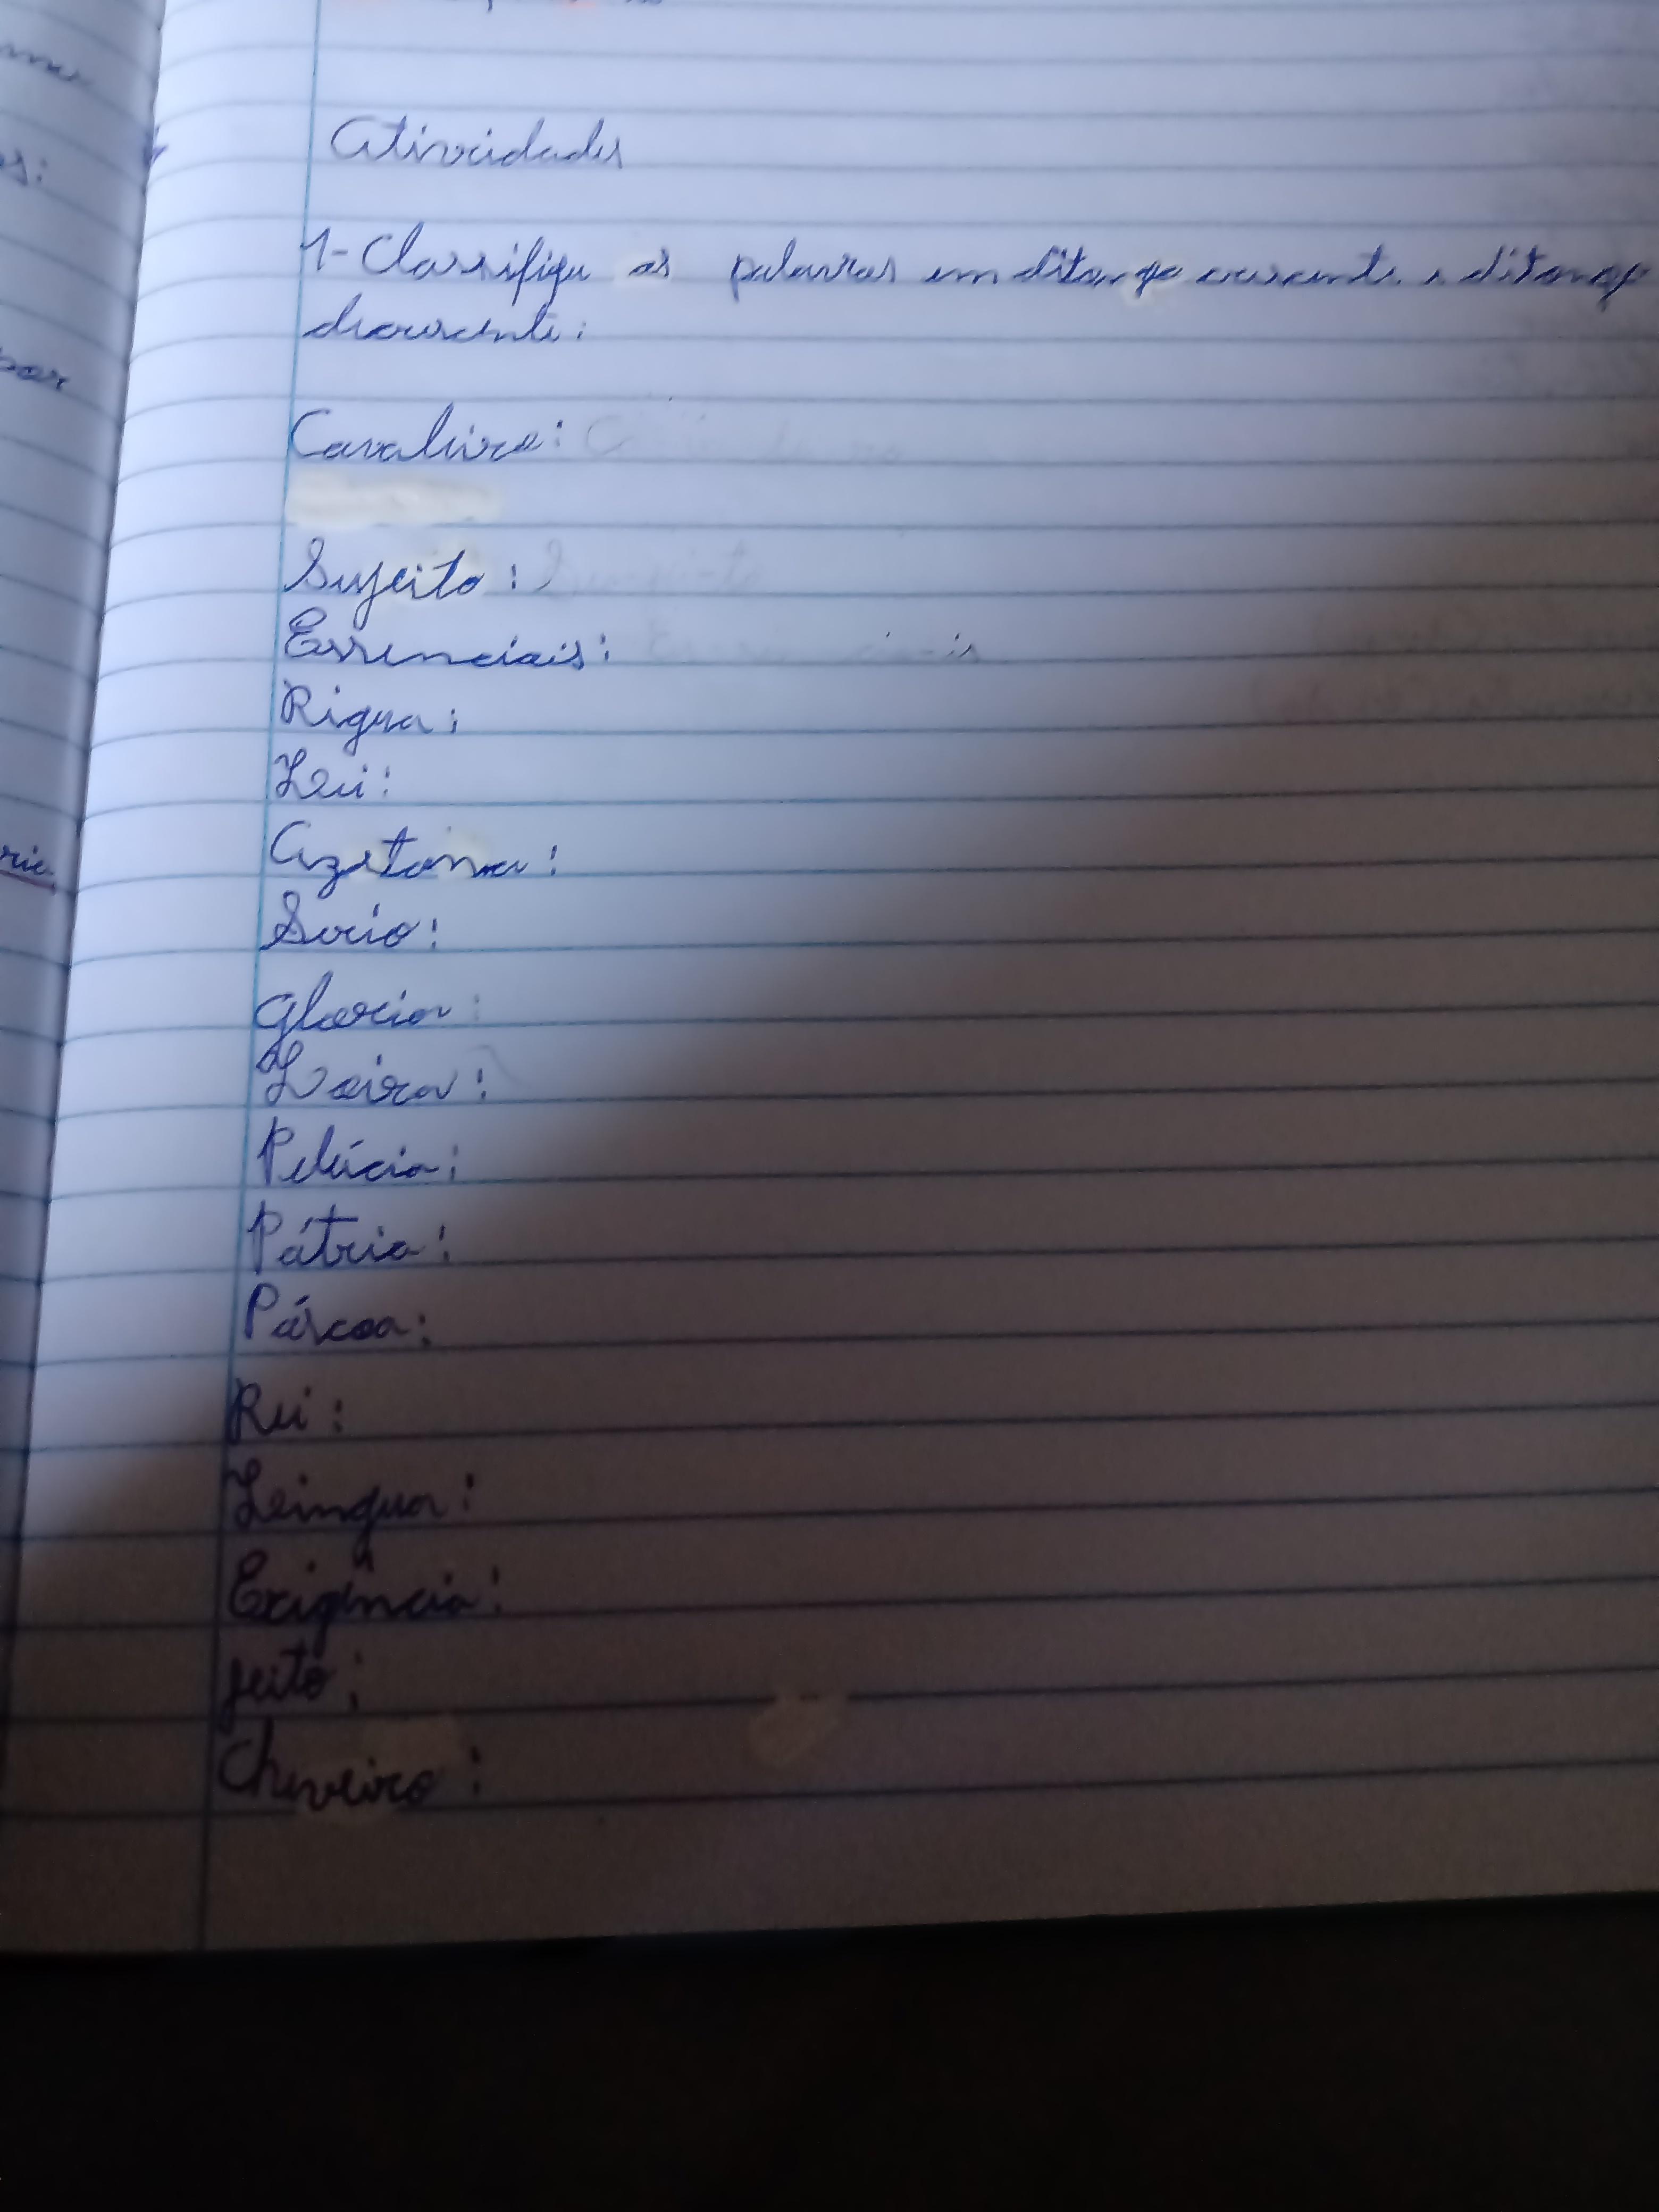 Atividades
1- Classifique as palavras em ditongo crescente e ditongo
decrescente:
Cavaleiro:
Sujeito:
Essenciais:
Rigua:
Lei:
Azetona:
Socio:
Gloria:
Loira:
Pelúcia:
Pátria:
Páscoa:
Rei:
Leingua:
Exigência:
jeito:
Chuveiro: